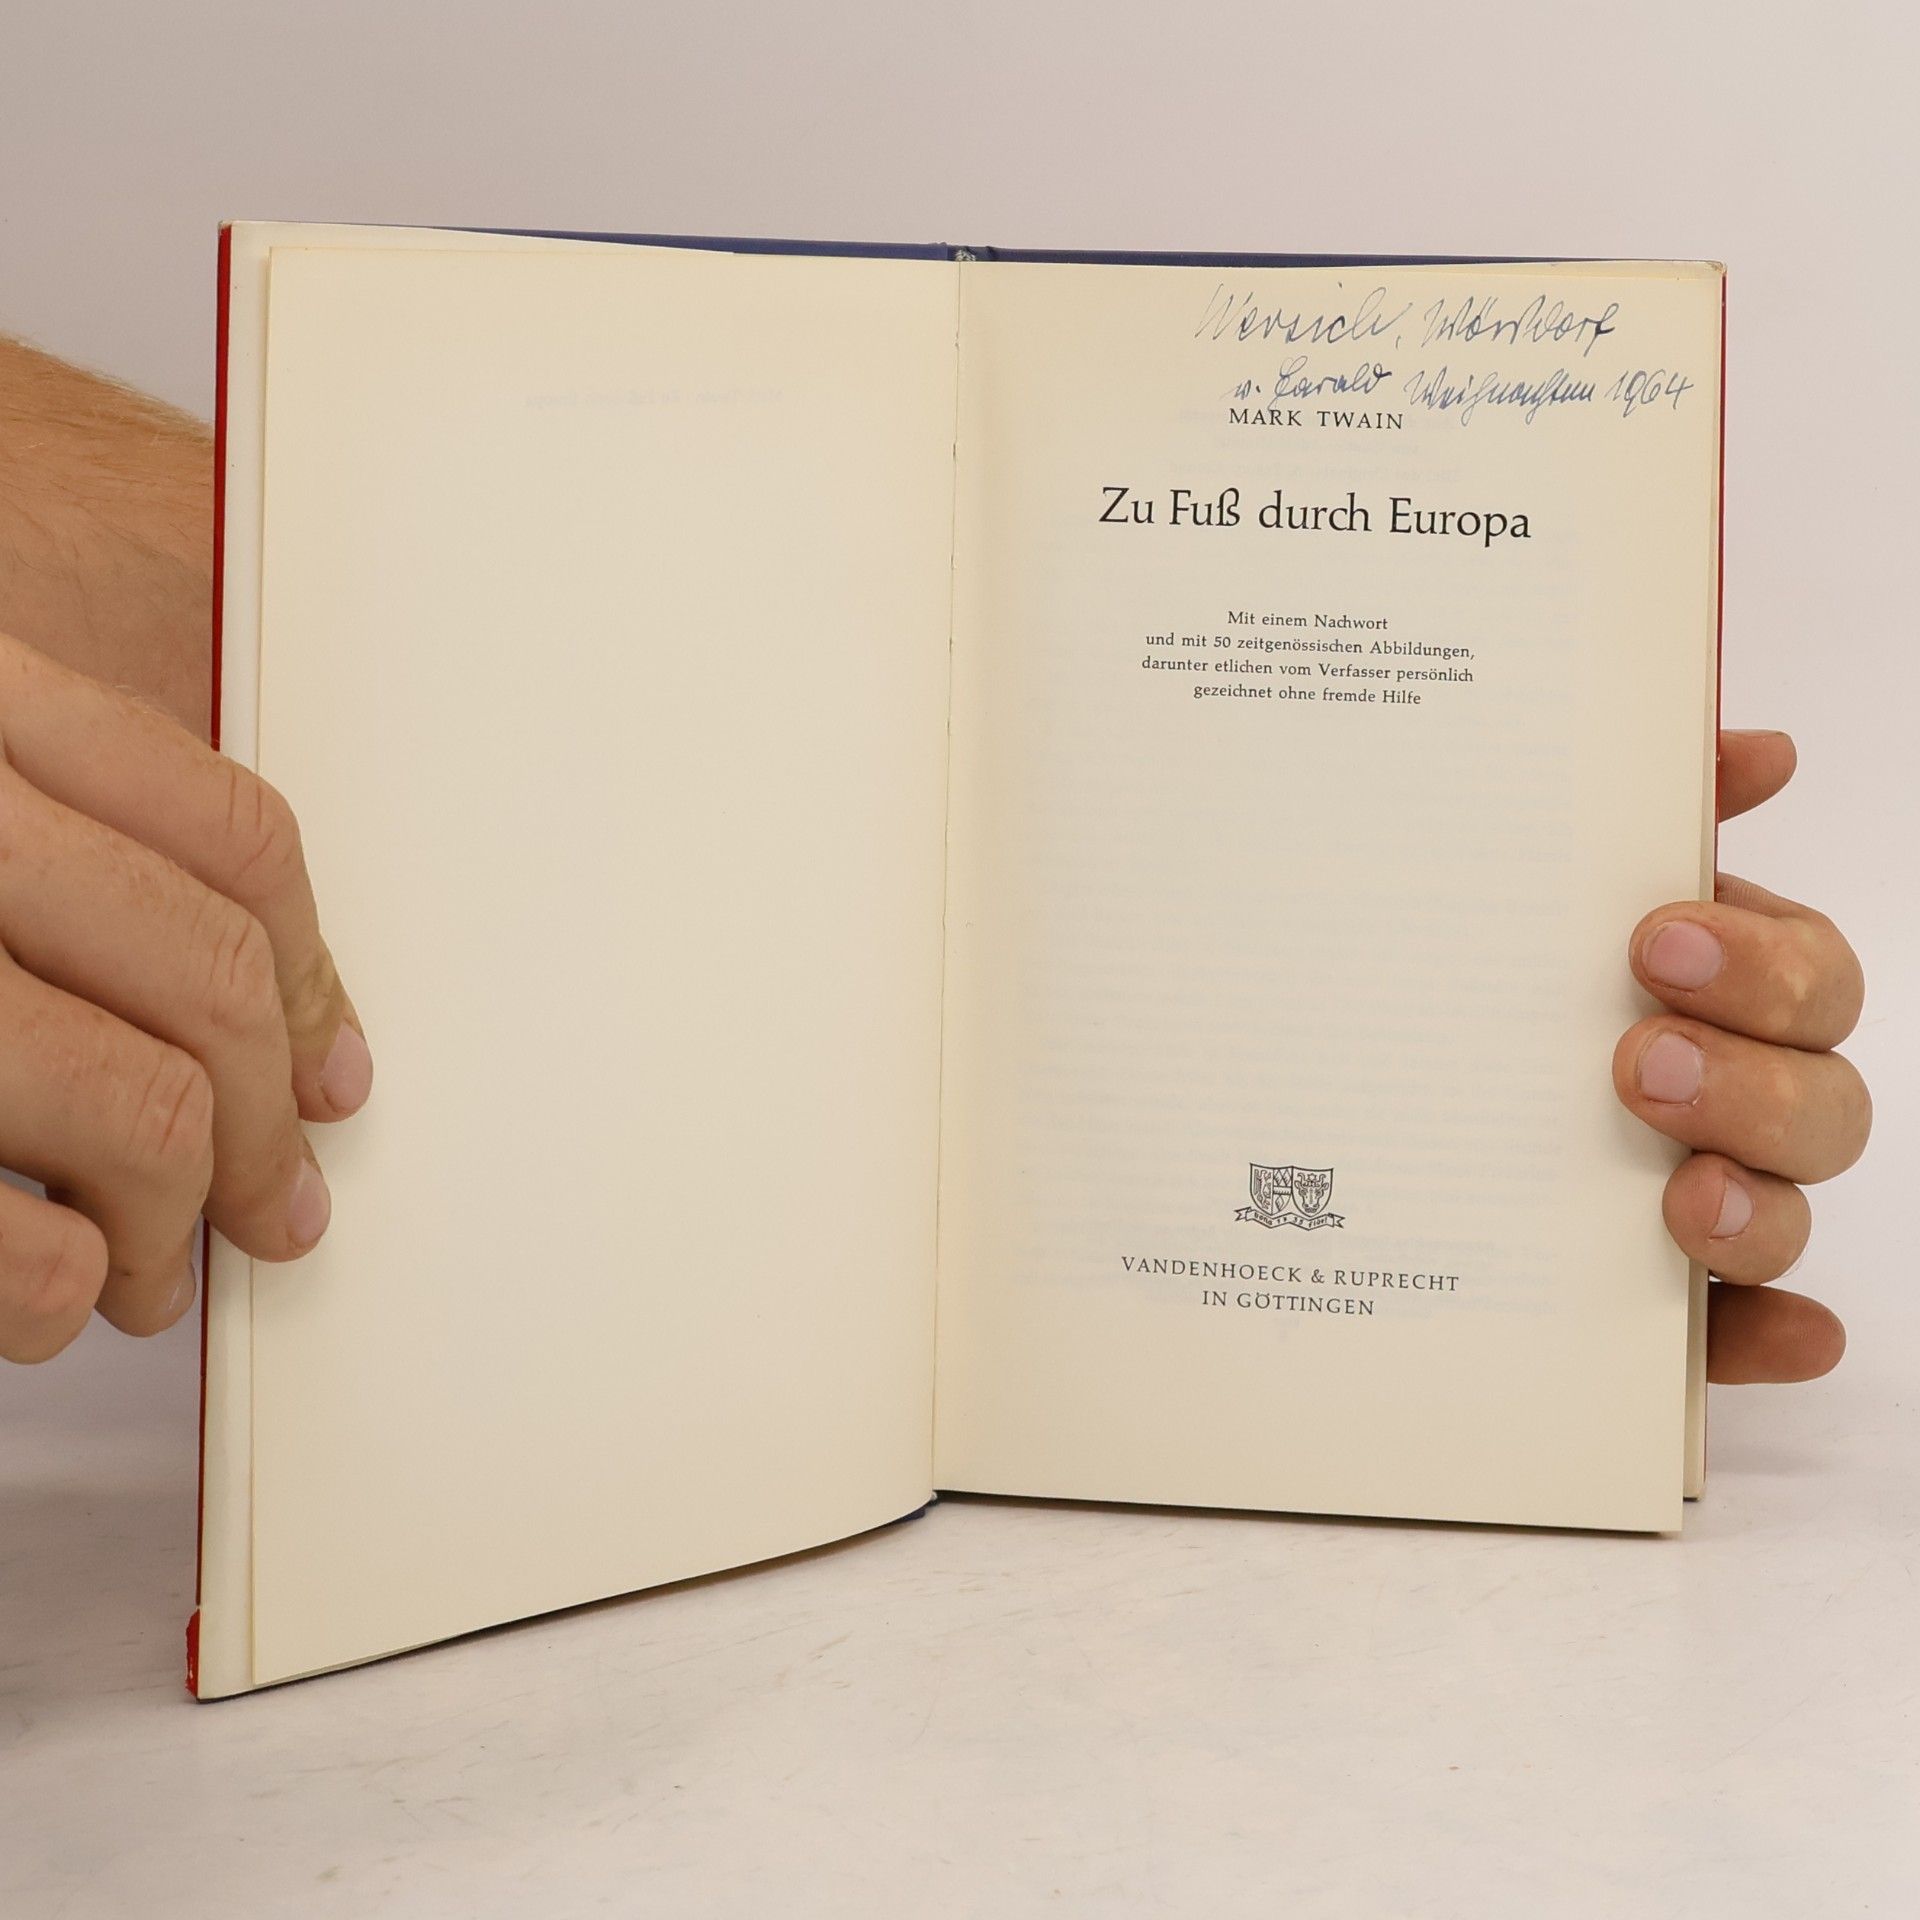 Wersich, Wörsdorf
v. Harald Weihnachten 1964
MARK TWAIN
Zu Fuß durch Europa
Mit einem Nachwort
und mit 50 zeitgenössischen Abbildungen,
darunter etlichen vom Verfasser persönlich
gezeichnet ohne fremde Hilfe
VANDENHOECK & RUPRECHT
IN GÖTTINGEN